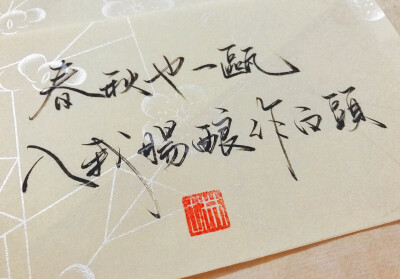 春秋也一甌
入我腸釀作白頭